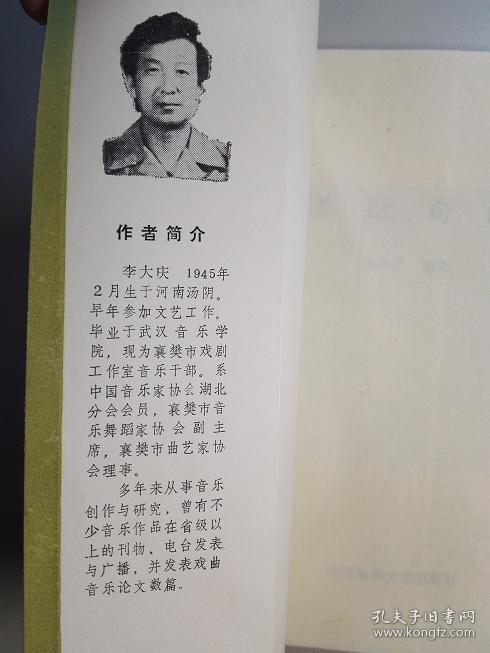 作者简介
李大庆 1945年
2月生于河南汤阴。
早年参加文艺工作。
毕业于武汉音乐学
院，现为襄樊市戏剧
工作室音乐干部。系
中国音乐家协会湖北
分会会员，襄樊市音
乐舞蹈家协会副主
席，襄樊市曲艺家协
会理事。
多年来从事音乐
创作与研究，曾有不
少音乐作品在省级以
上的刊物、电台发表
与广播，并发表戏曲
音乐论文数篇。
孔夫子旧书网
kongfz.com